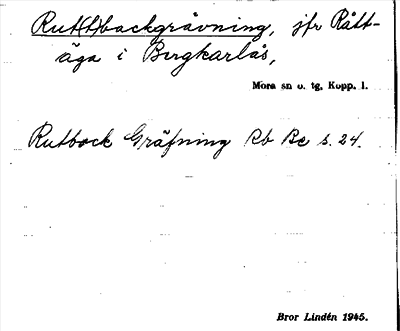 Rut(t)backgrävning, jfr Rått-
äga i Bergkarlås,
Mora sn o. tg, Kopp. l.
Rutback Gräfning Rb Bc s. 24.
Bror Lindén 1945.